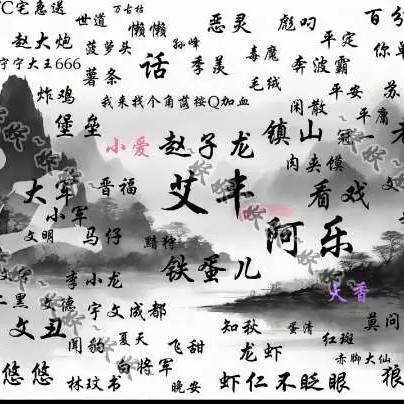 C宅急送 世道 万古枯 懒懒 恶灵 彪叼 百分
赵大炮 菠萝头 孙峰 毒魔 平定 你单
宁宁大王666 薯条 话 季羡 奔波霸
炸鸡 毛绒 平安 苏
我来找个角落按Q加血 闲散 平庸
堡垒 小爱 赵子龙 镇山 冠一 老
内夹馍
大军 晋福 艾丰 看戏 文
小军
文明 马仔 黯狩 阿乐
李小龙 铁蛋儿 大香
二黑 文德 宇文成都
文丑 知秋 蛋清 莫问
闻豹 夏天 飞甜 龙虾 红斑
白将军 赤脚大仙
悠悠 林玟书 晚安 虾仁不眨眼 狼